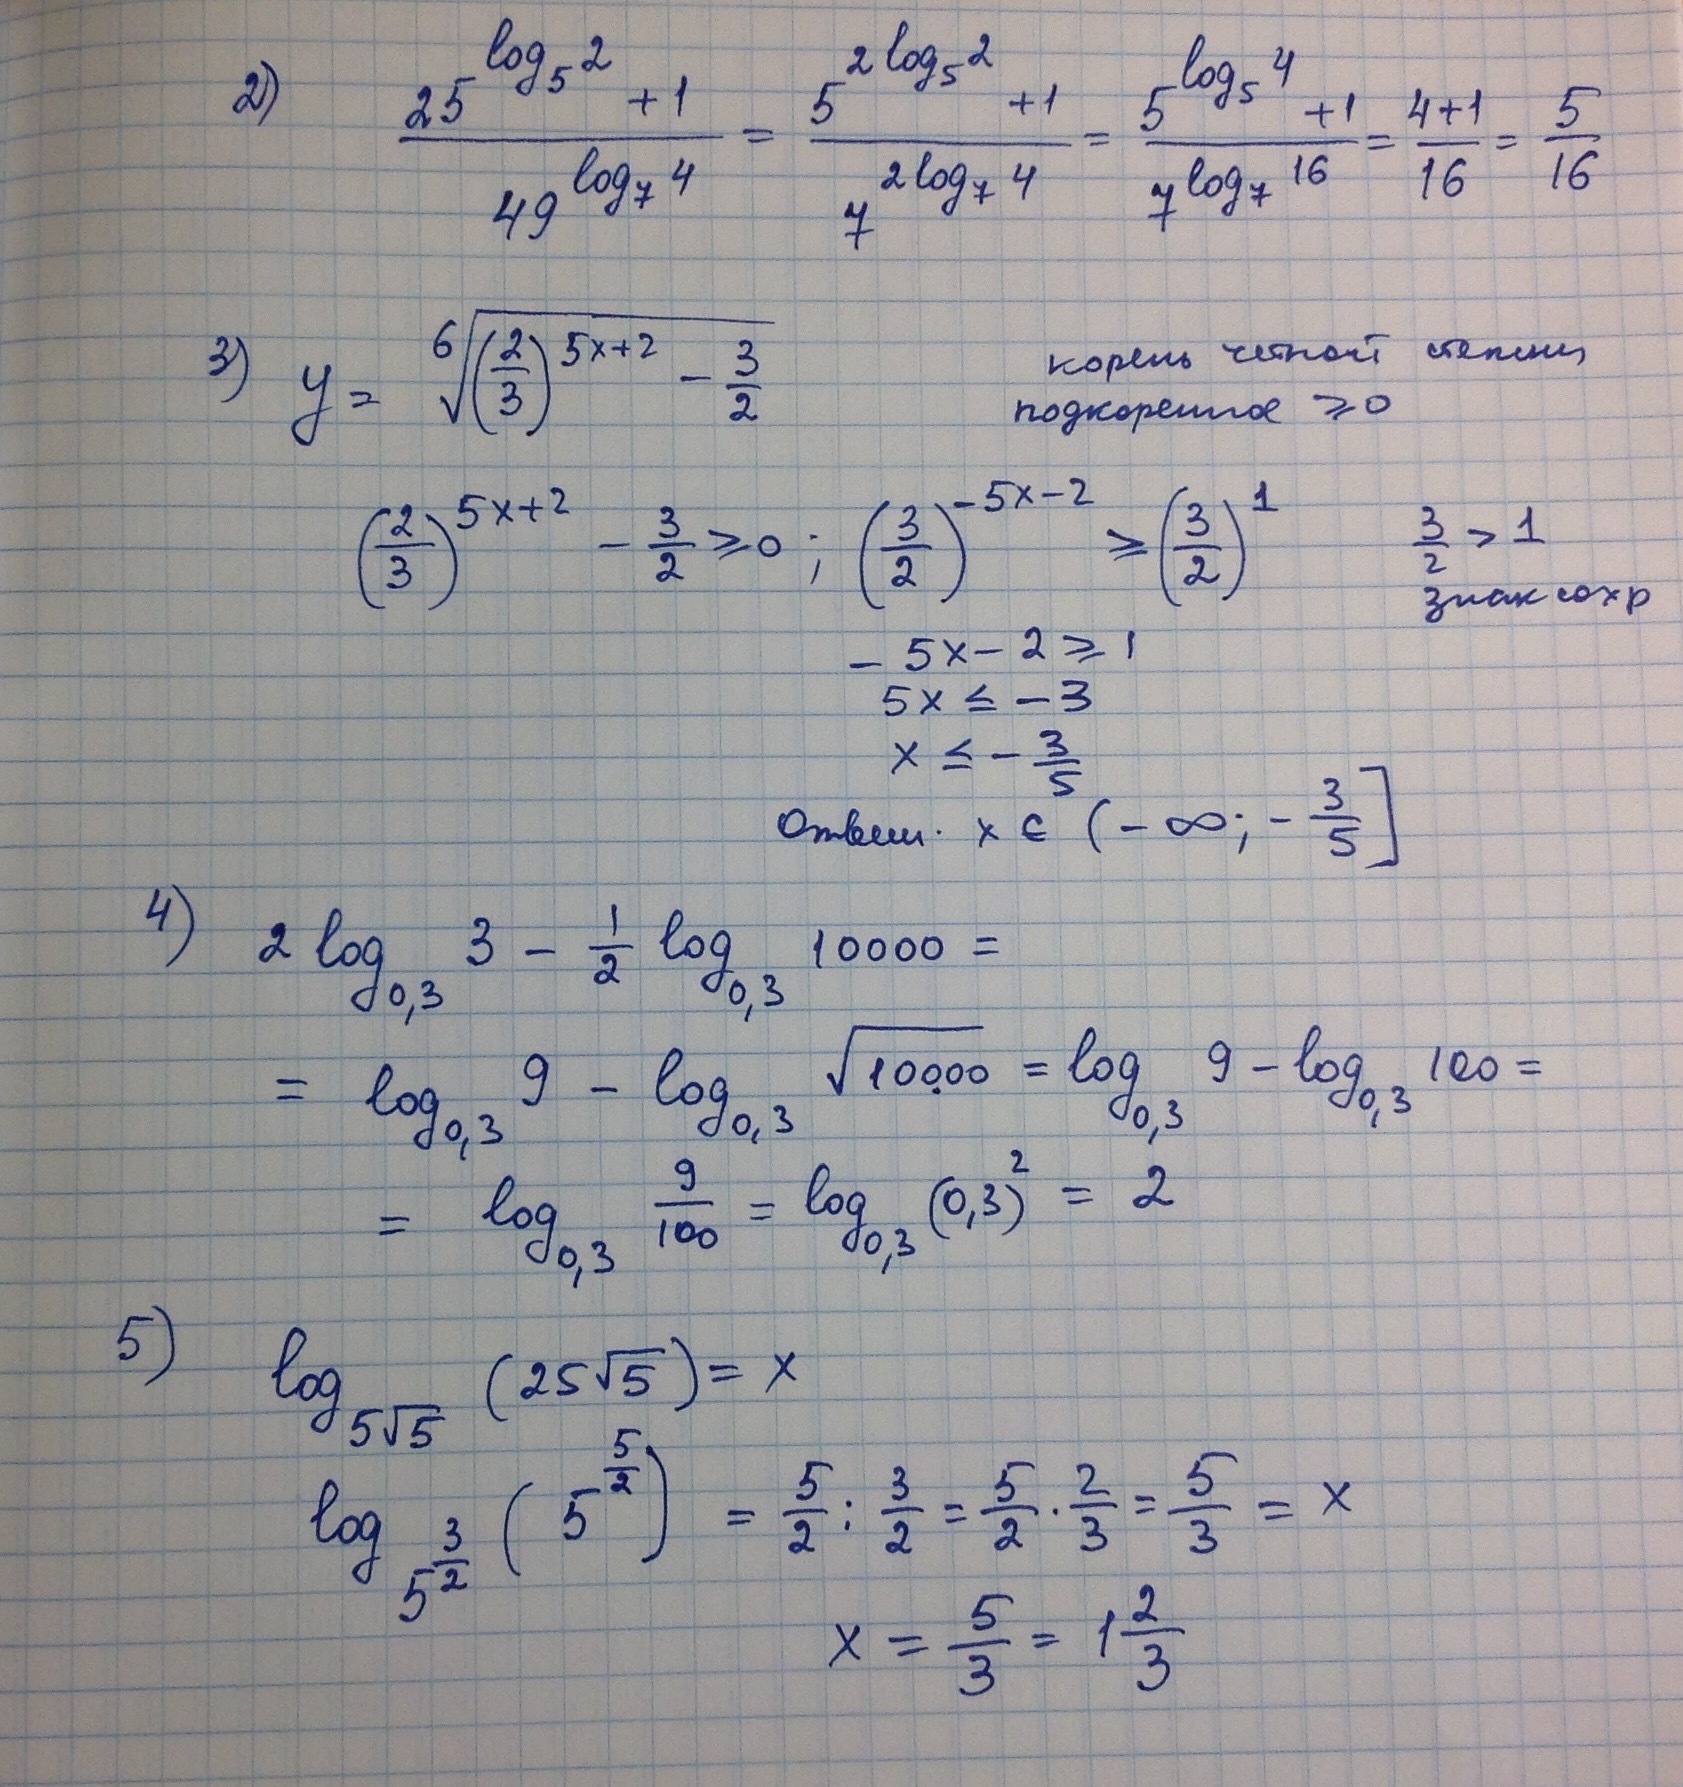 2) (25^(log_5 2) + 1)/(49^(log_7 4)) = (5^(2 log_5 2) + 1)/(7^(2 log_7 4)) = (5^(log_5 4) + 1)/(7^(log_7 16)) = (4+1)/16 = 5/16
3) y = ⁶√((2/3)^(5x+2) - 3/2) корень четной степени
подкоренное ≥ 0
(2/3)^(5x+2) - 3/2 ≥ 0 ; (3/2)^(-5x-2) ≥ (3/2)^1 3/2 > 1
знак сохр
- 5x - 2 ≥ 1
5x ≤ - 3
x ≤ - 3/5
Ответ. x ∈ (-∞; -3/5]
4) 2 log_0,3 3 - 1/2 log_0,3 10000 =
= log_0,3 9 - log_0,3 √10000 = log_0,3 9 - log_0,3 100 =
= log_0,3 9/100 = log_0,3 (0,3)^2 = 2
5) log_5√5 (25√5) = x
log_5^(3/2) (5^(5/2)) = 5/2 : 3/2 = 5/2 · 2/3 = 5/3 = x
x = 5/3 = 1 2/3